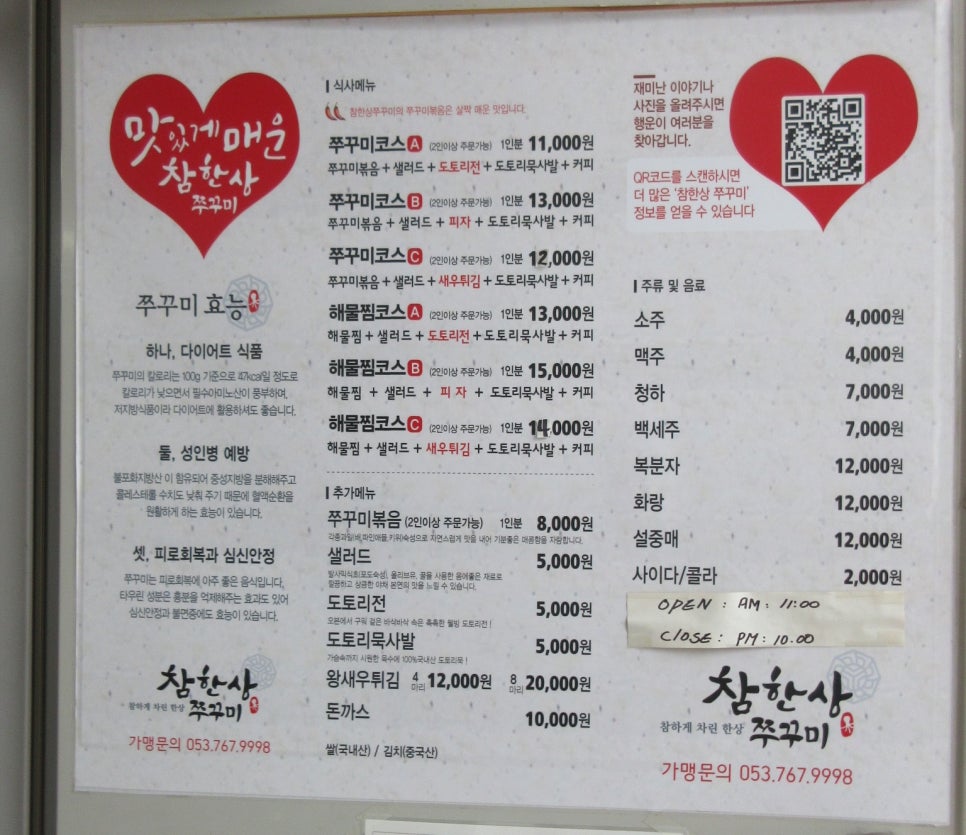 맛있게 매운
참한상
쭈꾸미
쭈꾸미 효능
하나, 다이어트 식품
쭈꾸미의 칼로리는 100g 기준으로 47kcal일 정도로
칼로리가 낮으면서 필수아미노산이 풍부하며,
저지방식품이라 다이어트에 활용하셔도 좋습니다.
둘, 성인병 예방
불포화지방산 이 함유되어 중성지방을 분해해주고
콜레스테롤 수치도 낮춰 주기 때문에 혈액순환을
원활하게 하는 효능이 있습니다.
셋, 피로회복과 심신안정
쭈꾸미는 피로회복에 아주 좋은 음식입니다.
타우린 성분은 흥분을 억제해주는 효과도 있어
심신안정과 불면증에도 효능이 있습니다.
참한상
참하게 차린 한상 쭈꾸미
가맹문의 053.767.9998
식사메뉴
참한상쭈꾸미의 쭈꾸미볶음은 살짝 매운 맛입니다.
쭈꾸미코스 A (2인이상 주문가능) 1인분 11,000원
쭈꾸미볶음 + 샐러드 + 도토리전 + 도토리묵사발 + 커피
쭈꾸미코스 B (2인이상 주문가능) 1인분 13,000원
쭈꾸미볶음 + 샐러드 + 피자 + 도토리묵사발 + 커피
쭈꾸미코스 C (2인이상 주문가능) 1인분 12,000원
쭈꾸미볶음 + 샐러드 + 새우튀김 + 도토리묵사발 + 커피
해물찜코스 A (2인이상 주문가능) 1인분 13,000원
해물찜 + 샐러드 + 도토리전 + 도토리묵사발 + 커피
해물찜코스 B (2인이상 주문가능) 1인분 15,000원
해물찜 + 샐러드 + 피 자 + 도토리묵사발 + 커피
해물찜코스 C (2인이상 주문가능) 1인분 14,000원
해물찜 + 샐러드 + 새우튀김 + 도토리묵사발 + 커피
추가메뉴
쭈꾸미볶음 (2인이상 주문가능) 1인분 8,000원
각종과일(배,파인애플,키위)숙성으로 자연스럽게 맛을 내어 기분좋은 매콤함을 자랑합니다.
샐러드 5,000원
발사믹식초(포도숙성), 올리브유, 꿀을 사용한 몸에좋은 재료로
깔끔하고 상큼한 야채 본연의 맛을 느낄 수 있습니다.
도토리전 5,000원
오븐에서 구워 겉은 바삭바삭 속은 촉촉한 웰빙 도토리전 !
도토리묵사발 5,000원
가슴속까지 시원한 육수에 100%국내산 도토리묵 !
왕새우튀김 4마리 12,000원 8마리 20,000원
돈까스 10,000원
쌀(국내산) / 김치(중국산)
재미난 이야기나
사진을 올려주시면
행운이 여러분을
찾아갑니다.
QR코드를 스캔하시면
더 많은 '참한상 쭈꾸미'
정보를 얻을 수 있습니다
주류 및 음료
소주 4,000원
맥주 4,000원
청하 7,000원
백세주 7,000원
복분자 12,000원
화랑 12,000원
설중매 12,000원
사이다/콜라 2,000원
OPEN : AM : 11:00
CLOSE : PM : 10.00
참한상
참하게 차린 한상 쭈꾸미
가맹문의 053.767.9998